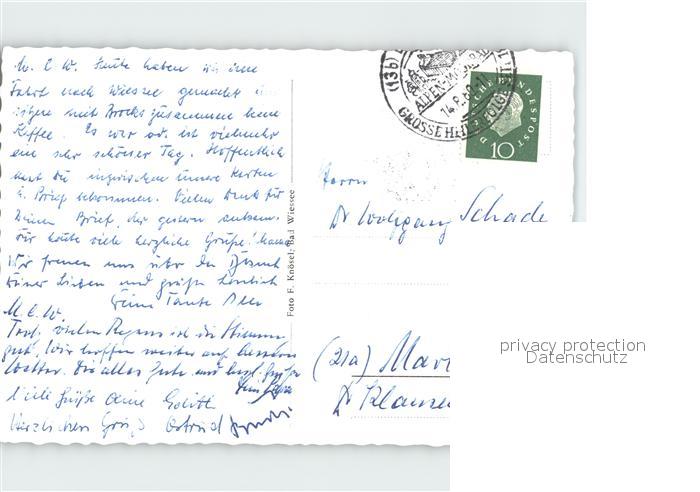 M. l. W. Heute haben wir eine
Fahrt nach Wiessee gemacht
sitzen mit Brocks zusammen beim
Kaffee. Es war od. ist vielmehr
ein sehr schöner Tag. Hoffentlich
hast Du inzwischen unsere Karten
u. Brief bekommen. Vielen Dank für
Deinen Brief, der gestern ankam.
Für heute viele herzliche Grüße!
Wir freuen uns über den Besuch
Deiner Lieben und grüße herzlich
Deine Tante
M. l. W.
Trotz vielen Regens ist die Stimmung
gut. Wir hoffen weiter auf besseres
Wetter. Dir alles Gute und herzl. Grüße
Dein
Viele Grüße Deine
Herzlichen Gruß
Foto F. Knösel, Bad Wiessee
(13b)
ALPEN-
14.8.60
GROSSE HEILERFOLGE
DEUTSCHE BUNDESPOST
10
Herrn
Dr Wolfgang Schade
(21a) Mar
Dr
privacy protection
Datenschutz